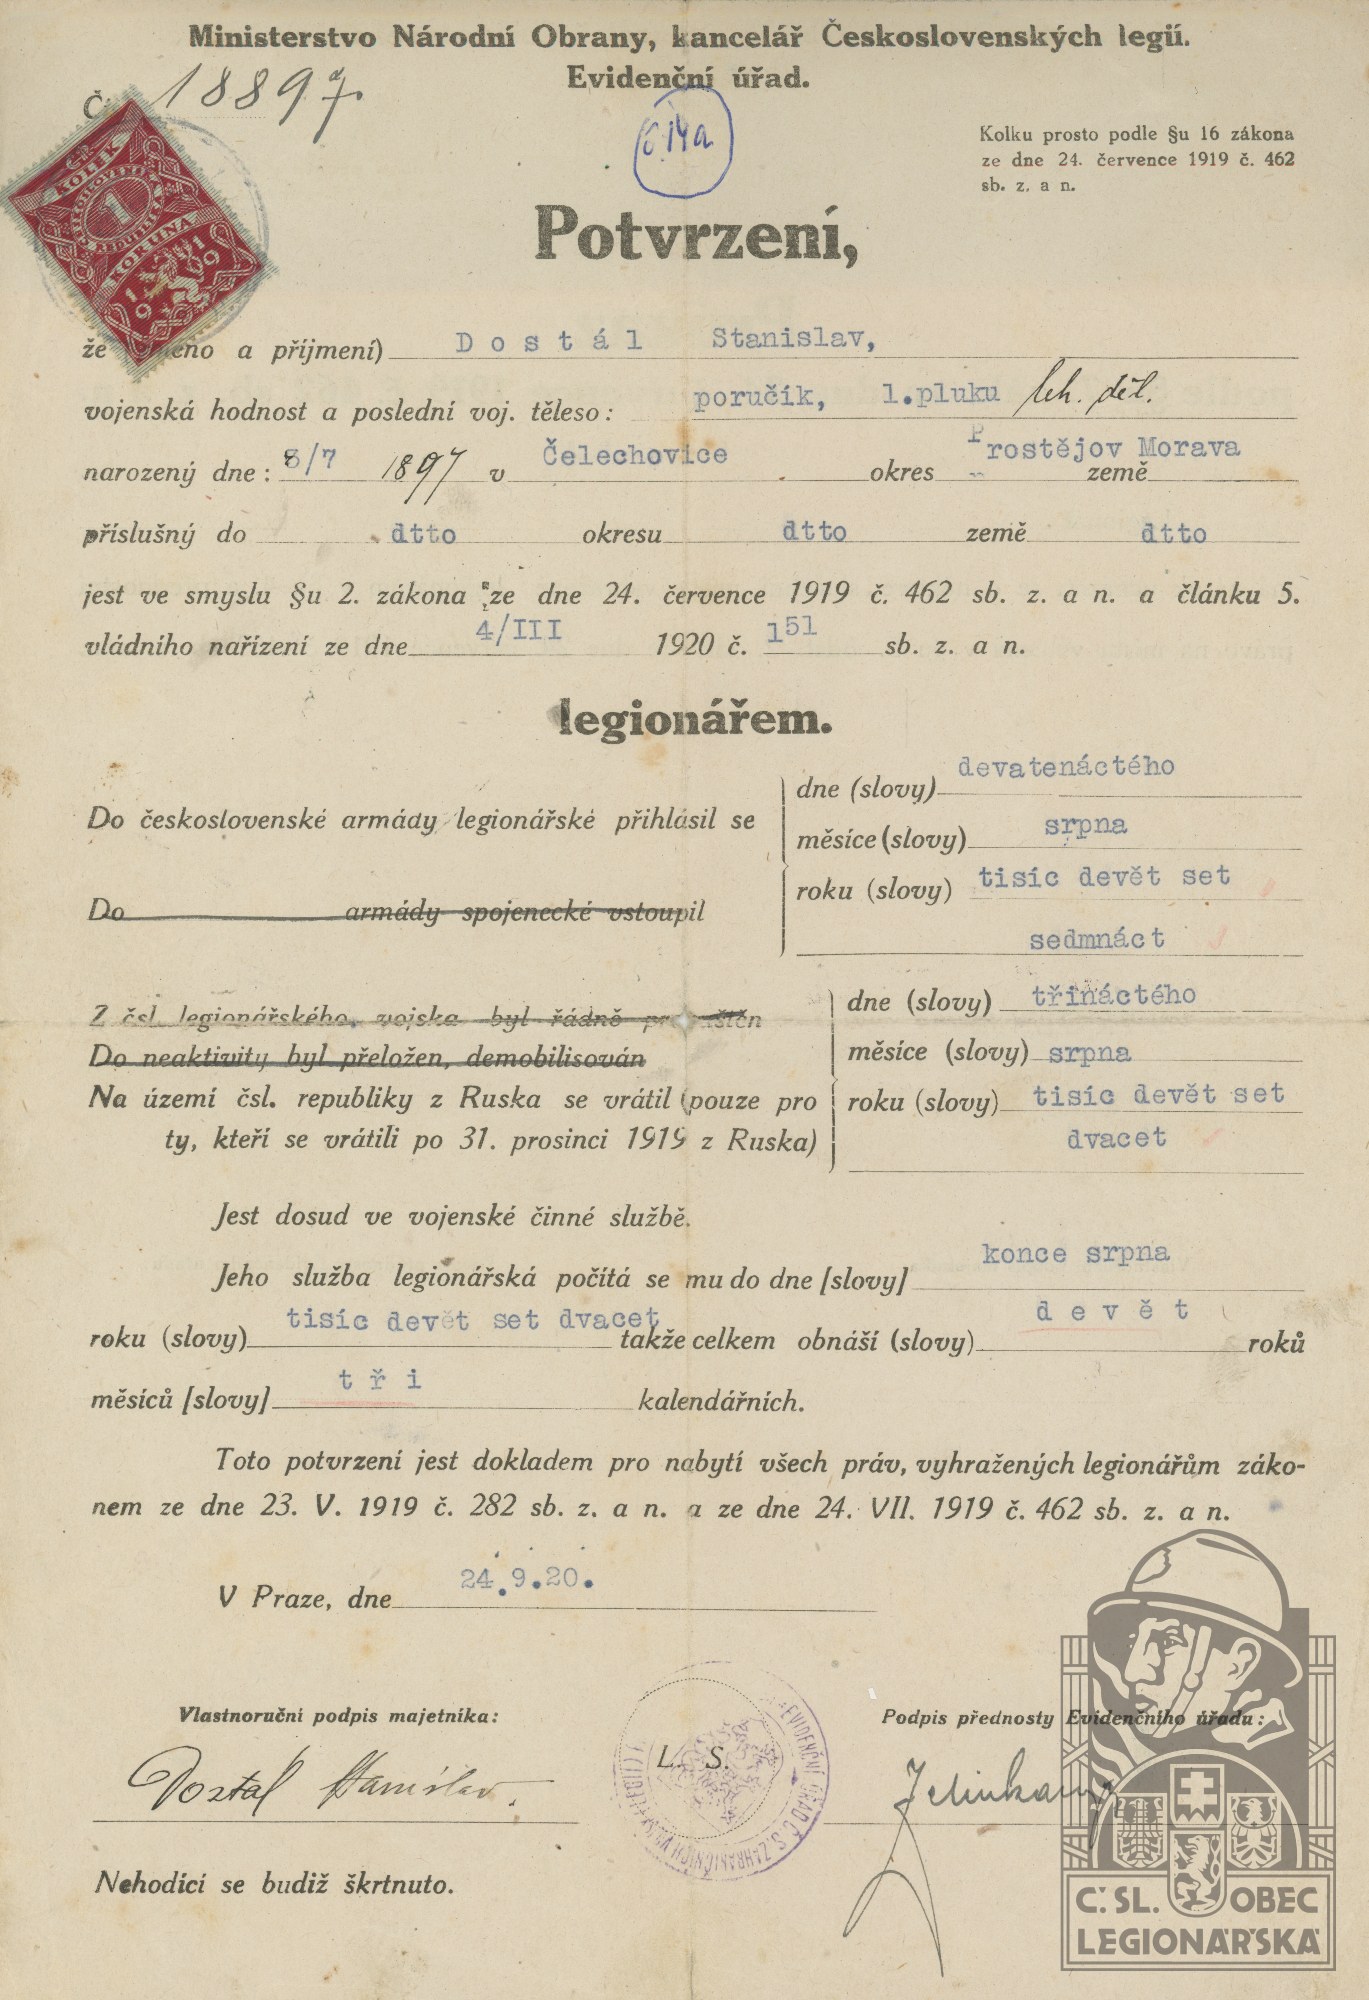 Ministerstvo Národní Obrany, kancelář Československých legií.
Evidenční úřad.
Č. 18897.
6.IYa
Kolku prosto podle §u 16 zákona
ze dne 24. července 1919 č. 462
sb. z. a n.
KOLEK
ČESKOSLOVENSKÁ
REPUBLIKA
1
KORUNA
1919
Potvrzení,
že a příjmení) Dostál Stanislav,
vojenská hodnost a poslední voj. těleso: poručík, 1.pluku leh. děl.
narozený dne: 8/7 1897 v Čelechovice okres Prostějov Morava země
příslušný do dtto okresu dtto země dtto
jest ve smyslu §u 2. zákona ze dne 24. července 1919 č. 462 sb. z. a n. a článku 5.
vládního nařízení ze dne 4/III 1920 č. 151 sb. z. a n.
legionářem.
Do československé armády legionářské přihlásil se
dne (slovy) devatenáctého
měsíce (slovy) srpna
roku (slovy) tisíc devět set
sedmnáct
Do armády spojenecké vstoupil
Z čsl. legionářského, vojska byl řádně propuštěn
Do neaktivity byl přeložen, demobilisován
Na území čsl. republiky z Ruska se vrátil (pouze pro
ty, kteří se vrátili po 31. prosinci 1919 z Ruska)
dne (slovy) třináctého
měsíce (slovy) srpna
roku (slovy) tisíc devět set
dvacet
Jest dosud ve vojenské činné službě.
Jeho služba legionářská počítá se mu do dne [slovy] konce srpna
roku (slovy) tisíc devět set dvacet takže celkem obnáší (slovy) devět roků
měsíců [slovy] tři kalendářních.
Toto potvrzení jest dokladem pro nabytí všech práv, vyhražených legionářům záko-
nem ze dne 23. V. 1919 č. 282 sb. z. a n. a ze dne 24. VII. 1919 č. 462 sb. z. a n.
V Praze, dne 24.9.20.
Vlastnoruční podpis majetníka:
Podpis přednosty Evidenčního úřadu:
L. S.
EVIDENČNÍ ÚŘAD Č.S. ZAHRANIČNÍCH
Dostál Stanislav.
Nehodící se budiž škrtnuto.
Č.SL. OBEC
LEGIONÁŘSKÁ